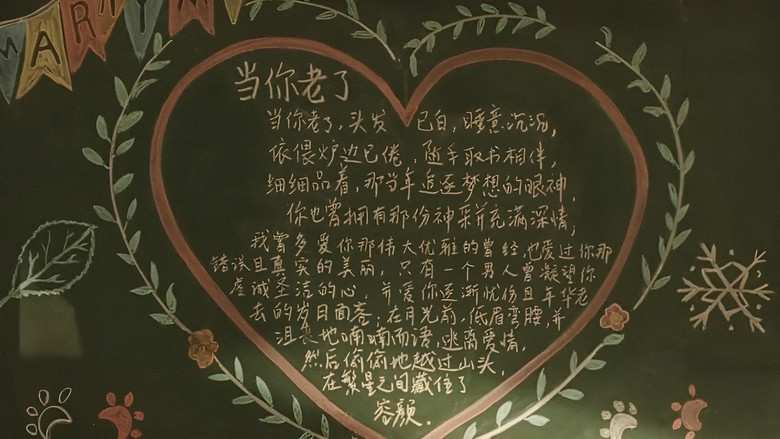 MARRY M
当你老了
当你老了，头发 已白，睡意沉沉，
依偎炉边已倦，随手取书相伴，
细细品着，那当年追逐梦想的眼神，
你也曾拥有那份神采并充满深情；
我曾多爱你那伟大优雅的曾经，也爱过你那
错误且真实的美丽，只有一个男人曾凝望你
虔诚圣洁的心，并爱你逐渐忧伤且年华老
去的岁日面容；在月光前，低眉弯腰，并
沮丧地喃喃而语，逃离爱情，
然后偷偷地越过山头，
在繁星之间藏住了
容颜。